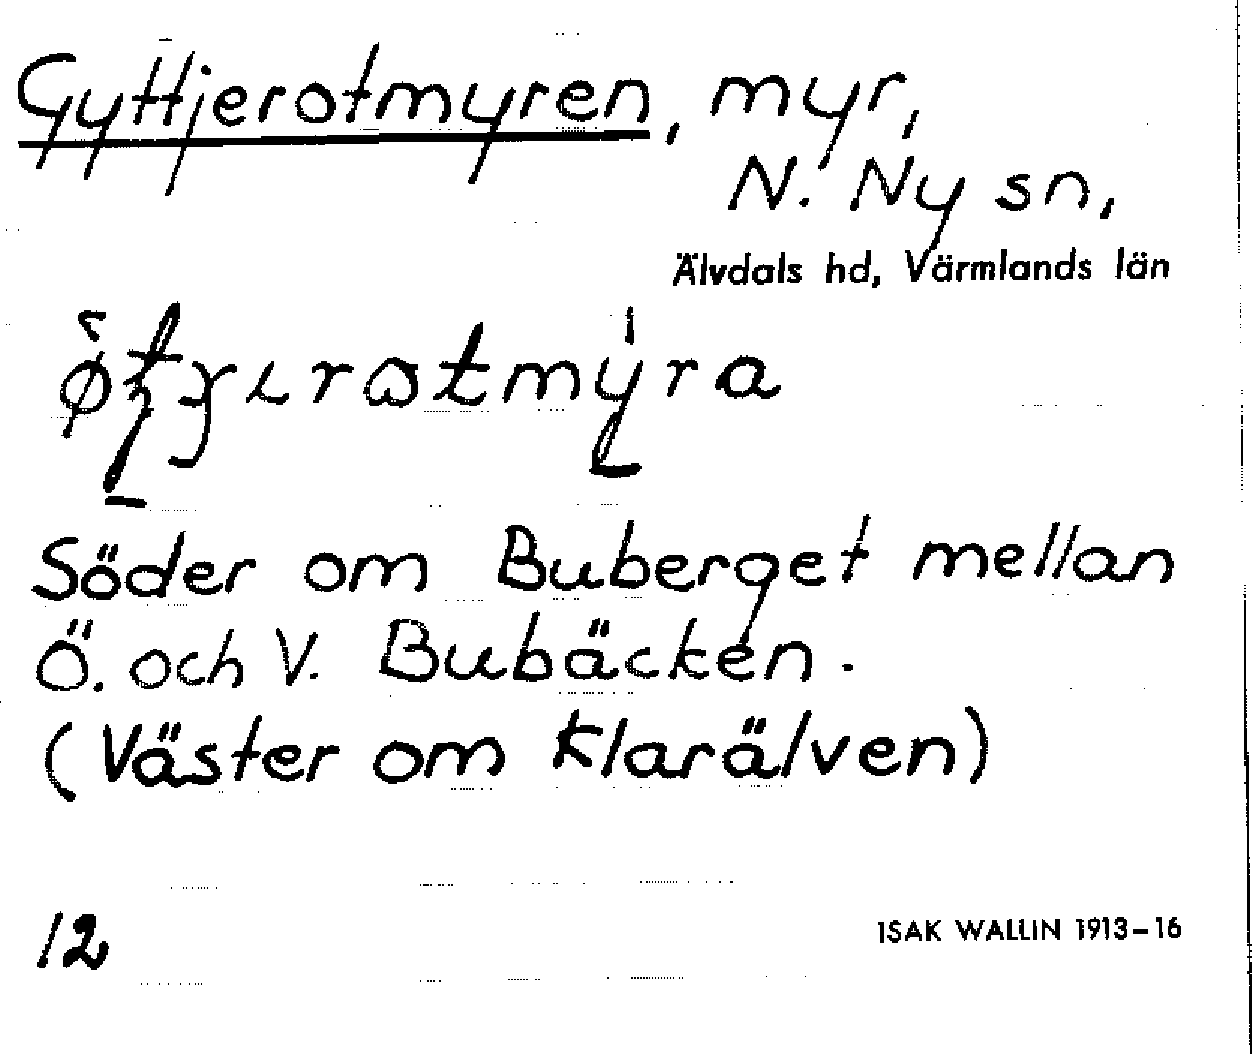 Gyttjerotmyren, myr,
N. Ny sn,
Älvdals hd, Värmlands län
Söder om Buberget mellan
Ö. och V. Bubäcken.
(Väster om Klarälven)
12
ISAK WALLIN 1913-16